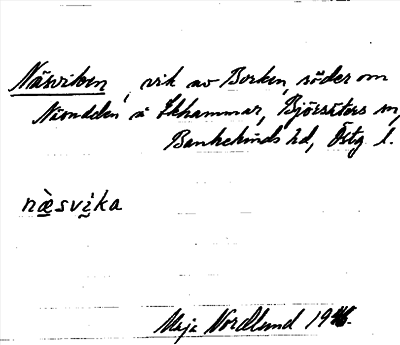 Näsviken, vik av Borken, söder om
Näsudden å Ekhammar, Björsäters sn,
Bankekinds hd, Östg l.
næ̀svika
Maja Nordlund 19